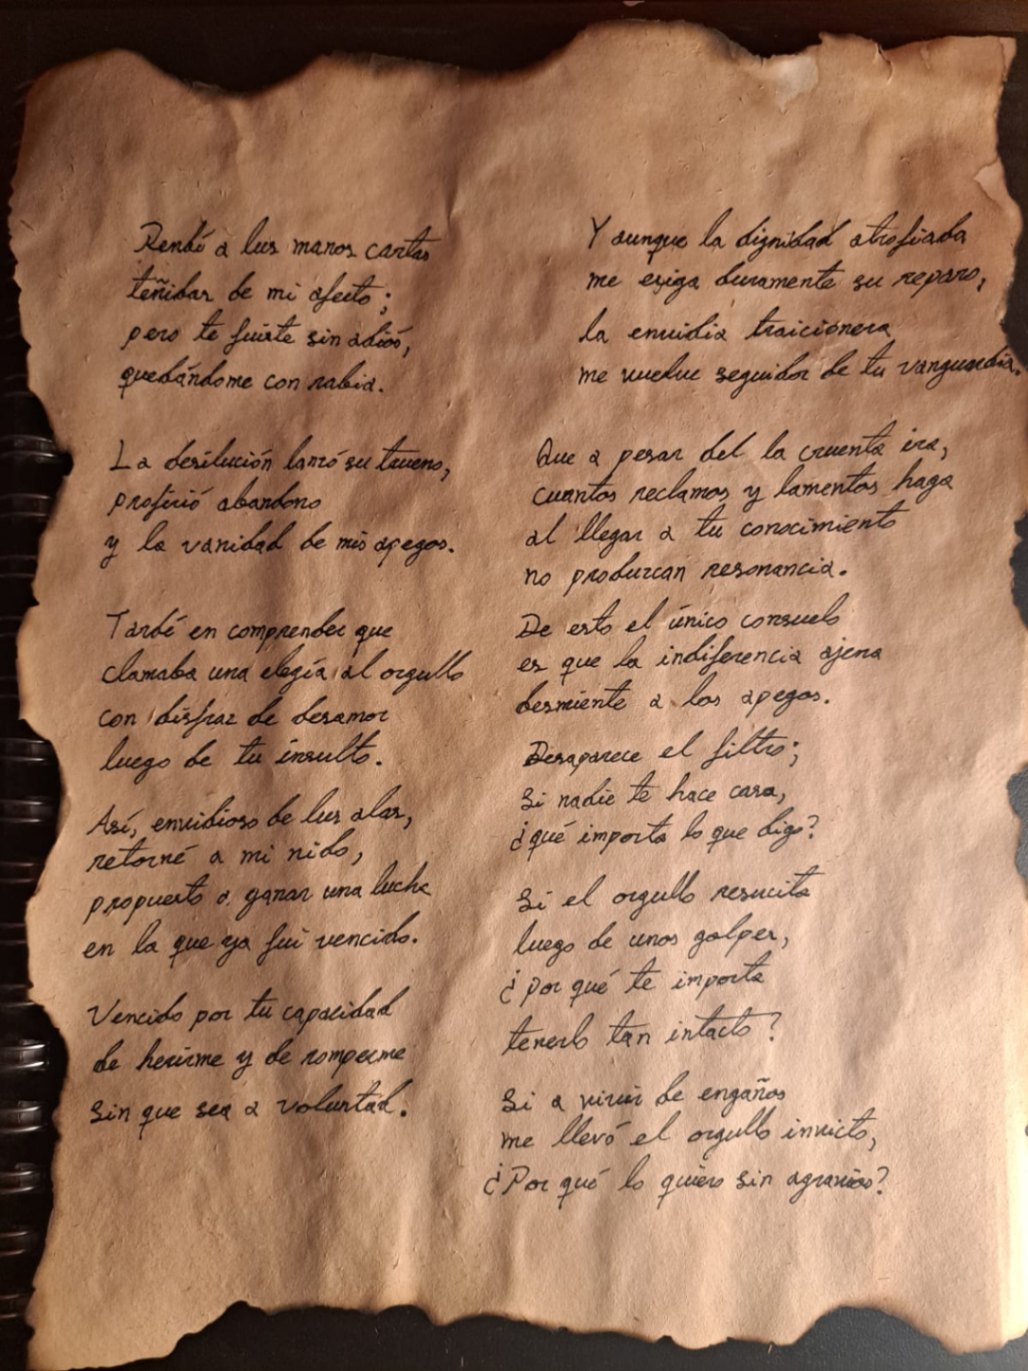 Rendí a tus manos cartas
teñidas de mi afecto;
pero te fuiste sin adiós,
quedándome con rabia.
La desilución lanzó su trueno,
profirió abandono
y la vanidad de mis apegos.
Tardé en comprender que
clamaba una elegía al orgullo
con disfraz de desamor
luego de tu insulto.
Así, envidioso de tus alas,
retorné a mi nido,
propuesto a ganar una lucha
en la que ya fui vencido.
Vencido por tu capacidad
de herirme y de romperme
sin que sea a voluntad.
Y aunque la dignidad atrofiada
me exiga duramente su reparo,
la envidia traicionera
me vuelve seguidor de tu vanguardia.
Que a pesar del la cruenta ira,
cuantos reclamos y lamentos haga
al llegar a tu conocimiento
no produzcan resonancia.
De esto el único consuelo
es que la indiferencia ajena
desmiente a los apegos.
Desaparece el filtro;
Si nadie te hace caso,
¿qué importa lo que digo?
Si el orgullo resucita
luego de unos golpes,
¿Por qué te importa
tenerlo tan intacto?
Si a vivir de engaños
me llevó el orgullo invicto,
¿Por qué lo quiero sin agravios?